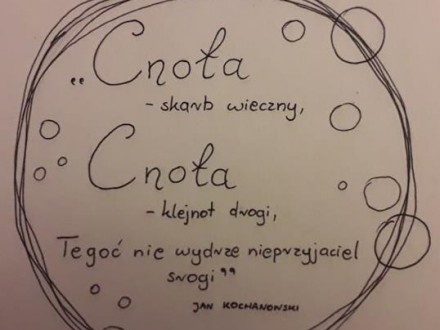 „Cnota
- skarb wieczny,
Cnota
- klejnot drogi,
Tegoć nie wydrze nieprzyjaciel
srogi”
JAN KOCHANOWSKI